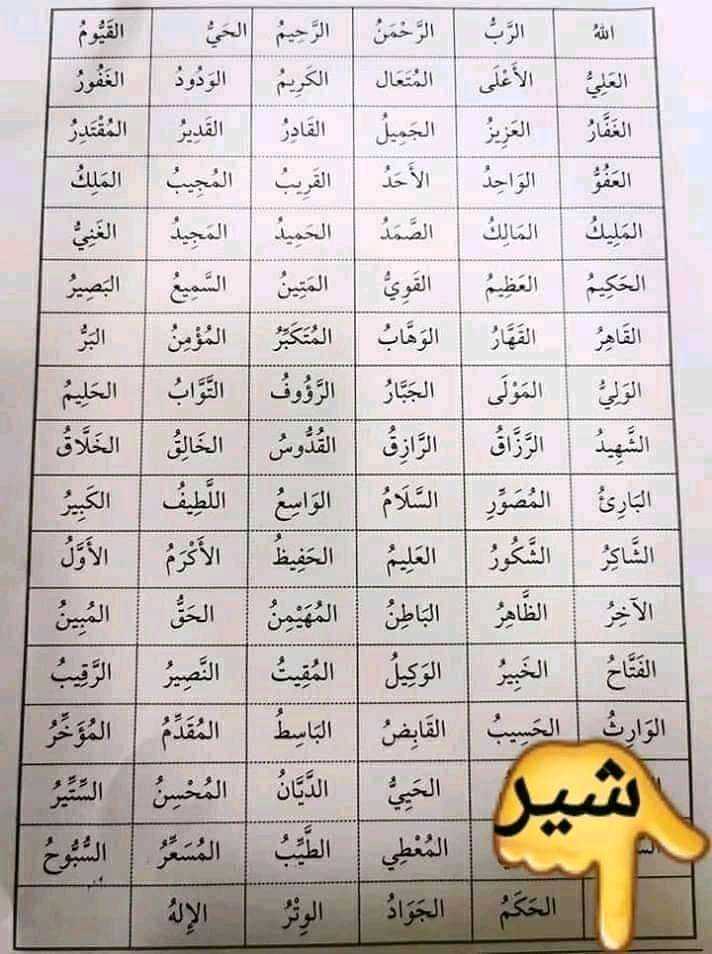 اللهُ الرَّبُّ الرَّحْمَنُ الرَّحِيمُ الحَيُّ القَيُّومُ
العَلِيُّ الأَعْلَى المُتَعَال الكَرِيمُ الوَدُودُ الغَفُورُ
الغَفَّارُ العَزِيزُ الجَمِيلُ القَادِرُ القَدِيرُ المُقْتَدِرُ
العَفُوُّ الوَاحِدُ الأَحَدُ القَرِيبُ المُجِيبُ المَلِكُ
المَلِيكُ المَالِكُ الصَّمَدُ الحَمِيدُ المَجِيدُ الغَنِيُّ
الحَكِيمُ العَظِيمُ القَوِيُّ المَتِينُ السَّمِيعُ البَصِيرُ
القَاهِرُ القَهَّارُ الوَهَّابُ المُتَكَبِّرُ المُؤْمِنُ البَرُّ
الوَلِيُّ المَوْلَى الجَبَّارُ الرَّؤُوفُ التَّوَّابُ الحَلِيمُ
الشَّهِيدُ الرَّزَّاقُ الرَّازِقُ القُدُّوسُ الخَالِقُ الخَلَّاقُ
البَارِئُ المُصَوِّرِ السَّلَامُ الوَاسِعُ اللَّطِيفُ الكَبِيرُ
الشَّاكِرُ الشَّكُورُ العَلِيمُ الحَفِيظُ الأَكْرَمُ الأَوَّلُ
الآخِرُ الظَّاهِرُ البَاطِنُ المُهَيْمِنُ الحَقُّ المُبِينُ
الفَتَّاحُ الخَبِيرُ الوَكِيلُ المُقِيتُ النَّصِيرُ الرَّقِيبُ
الوَارِثُ الحَسِيبُ القَابِضُ البَاسِطُ المُقَدِّمُ المُؤَخِّرُ
الحَيِيُّ الدَّيَّانُ المُحْسِنُ السِّتِّيرُ
شير
المُعْطِي الطَّيِّبُ المُسَعِّرُ السُّبُّوحُ
الحَكَمُ الجَوَادُ الوِتْرُ الإِلهُ